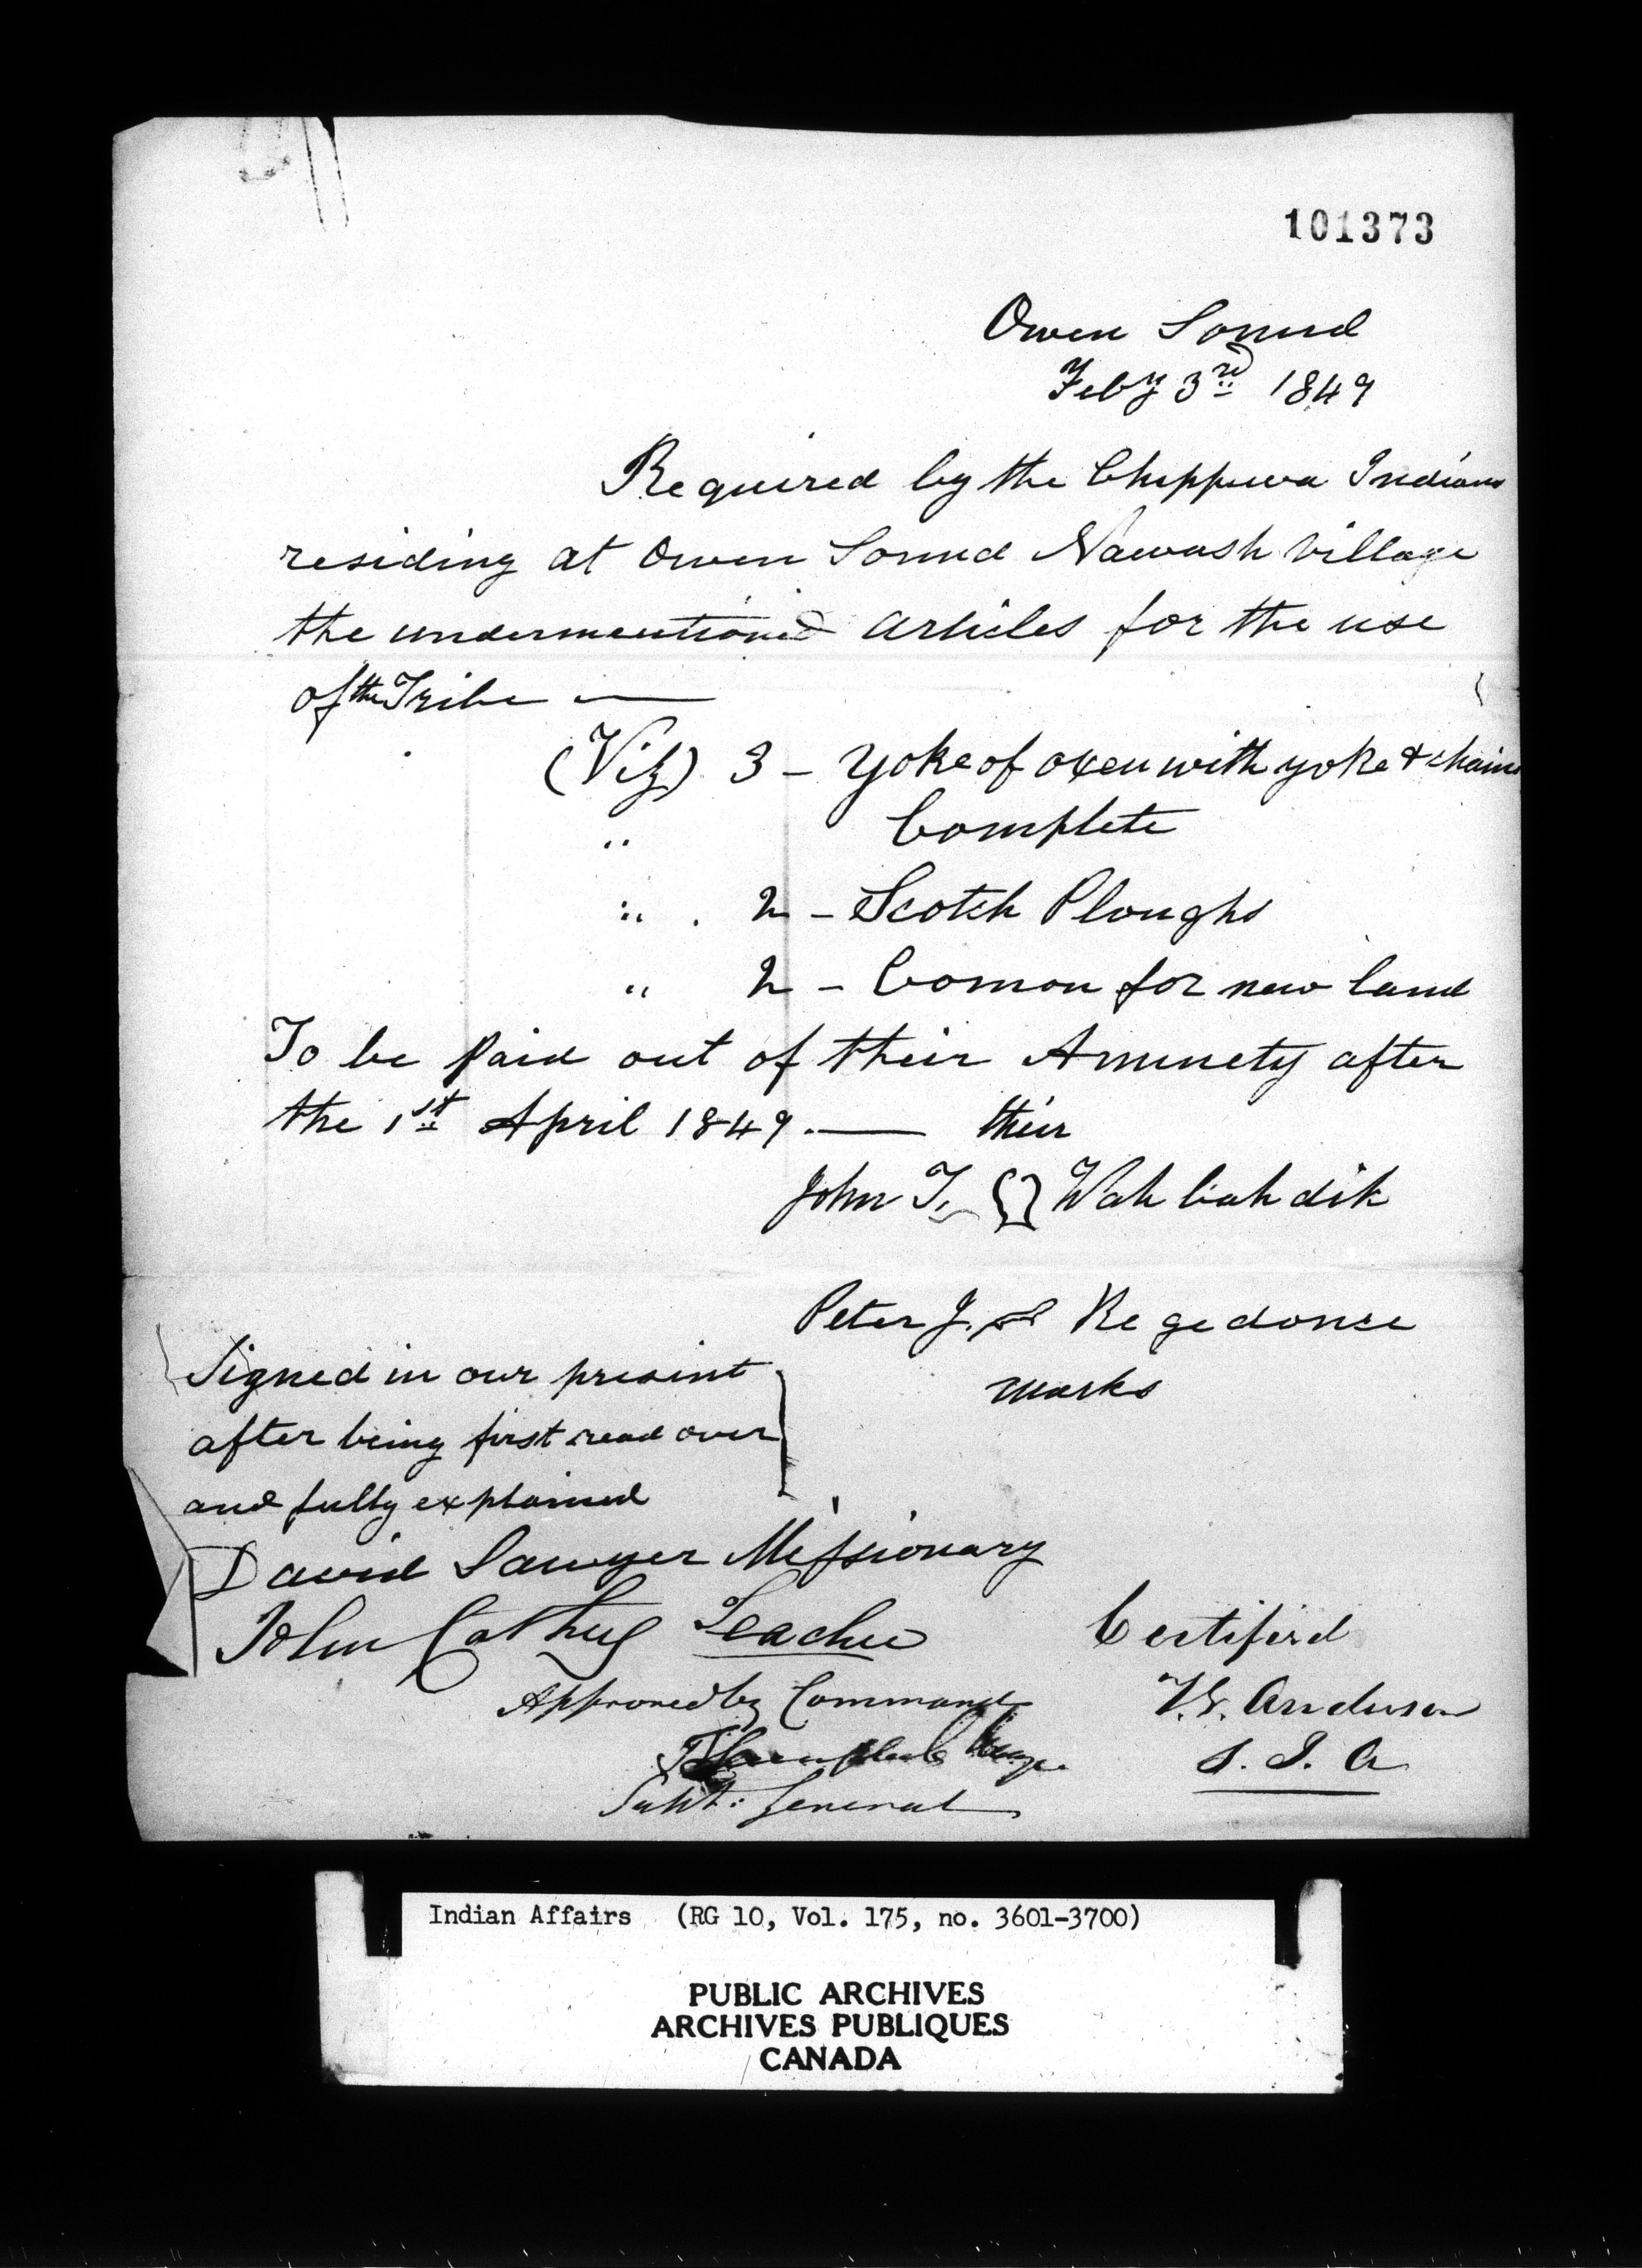 101373
Owen Sound
Feby 3rd 1849
Required by the Chippewa Indians
residing at Owen Sound Nawash Village
the undermentioned articles for the use
of the Tribe —
(Viz) 3 - Yoke of oxen with yoke & chains
" Complete
" 2 - Scotch Ploughs
" 2 - Comon for new land
To be paid out of their Annuety after
the 1st April 1849. — their
John T. Wah bah dik
Peter J. Ke ge donce
marks
Signed in our presint
after being first read over
and fully explained
David Sawyer Missionary
John Cathey Teacher
Certified
Approved by Command
T. G. Anderson
S. I. A
Supt: General
Indian Affairs (RG 10, Vol. 175, no. 3601-3700)
PUBLIC ARCHIVES
ARCHIVES PUBLIQUES
CANADA